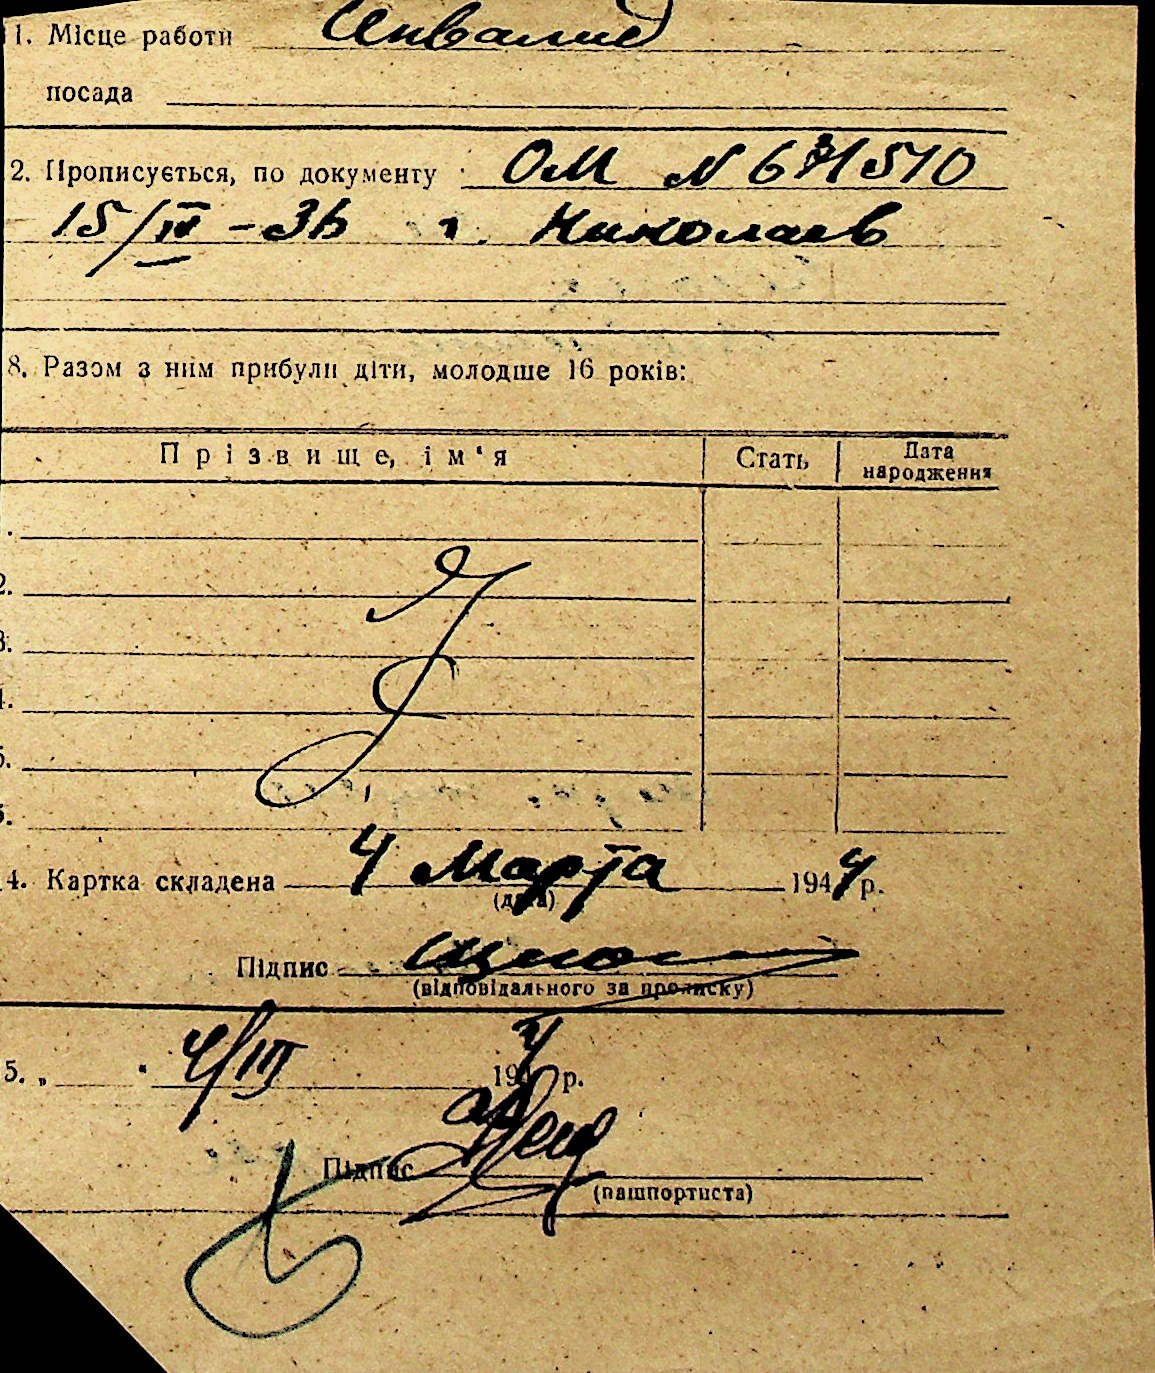 1. Місце работи Инвалид
посада
2. Прописується, по документу ОМ N 631510
15/IV - 36 г. Николаев
8. Разом з ним прибули діти, молодше 16 років:
Прізвище, ім'я Стать Дата народження
2.
3.
4. Картка складена 4 Марта 1944 р.
(дата)
Підпис
(відповідального за прописку)
5. „ “ 4/III 1944 р.
Підпис
(пашпортиста)